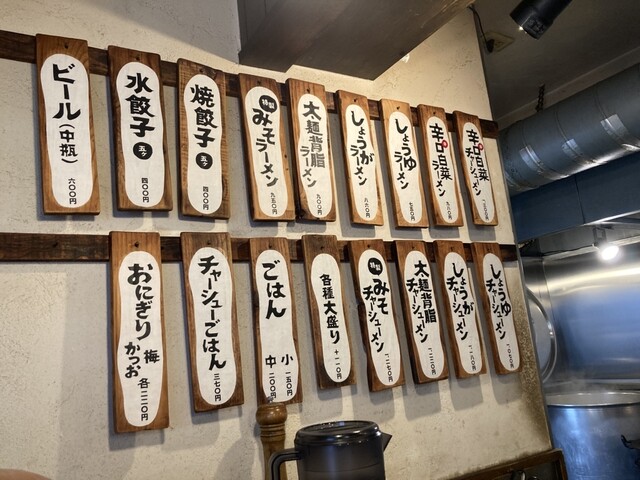 辛口白菜
チャーシューメン
辛口白菜
ラーメン
しょうゆ
ラーメン
七五〇円
しょうが
ラーメン
八六〇円
太麺背脂
ラーメン
九〇〇円
特製
みそ
ラーメン
九五〇円
焼餃子
五ヶ
四〇〇円
水餃子
五ヶ
四〇〇円
ビール(中瓶)
六〇〇円
しょうゆ
チャーシューメン
一、〇七〇円
しょうが
チャーシューメン
一、一八〇円
太麺背脂
チャーシューメン
一、二二〇円
特製
みそ
チャーシューメン
一、二七〇円
各種大盛り
+一一〇円
ごはん
小 一五〇円
中 二〇〇円
チャーシューごはん
三七〇円
おにぎり
梅
かつお
各一二〇円